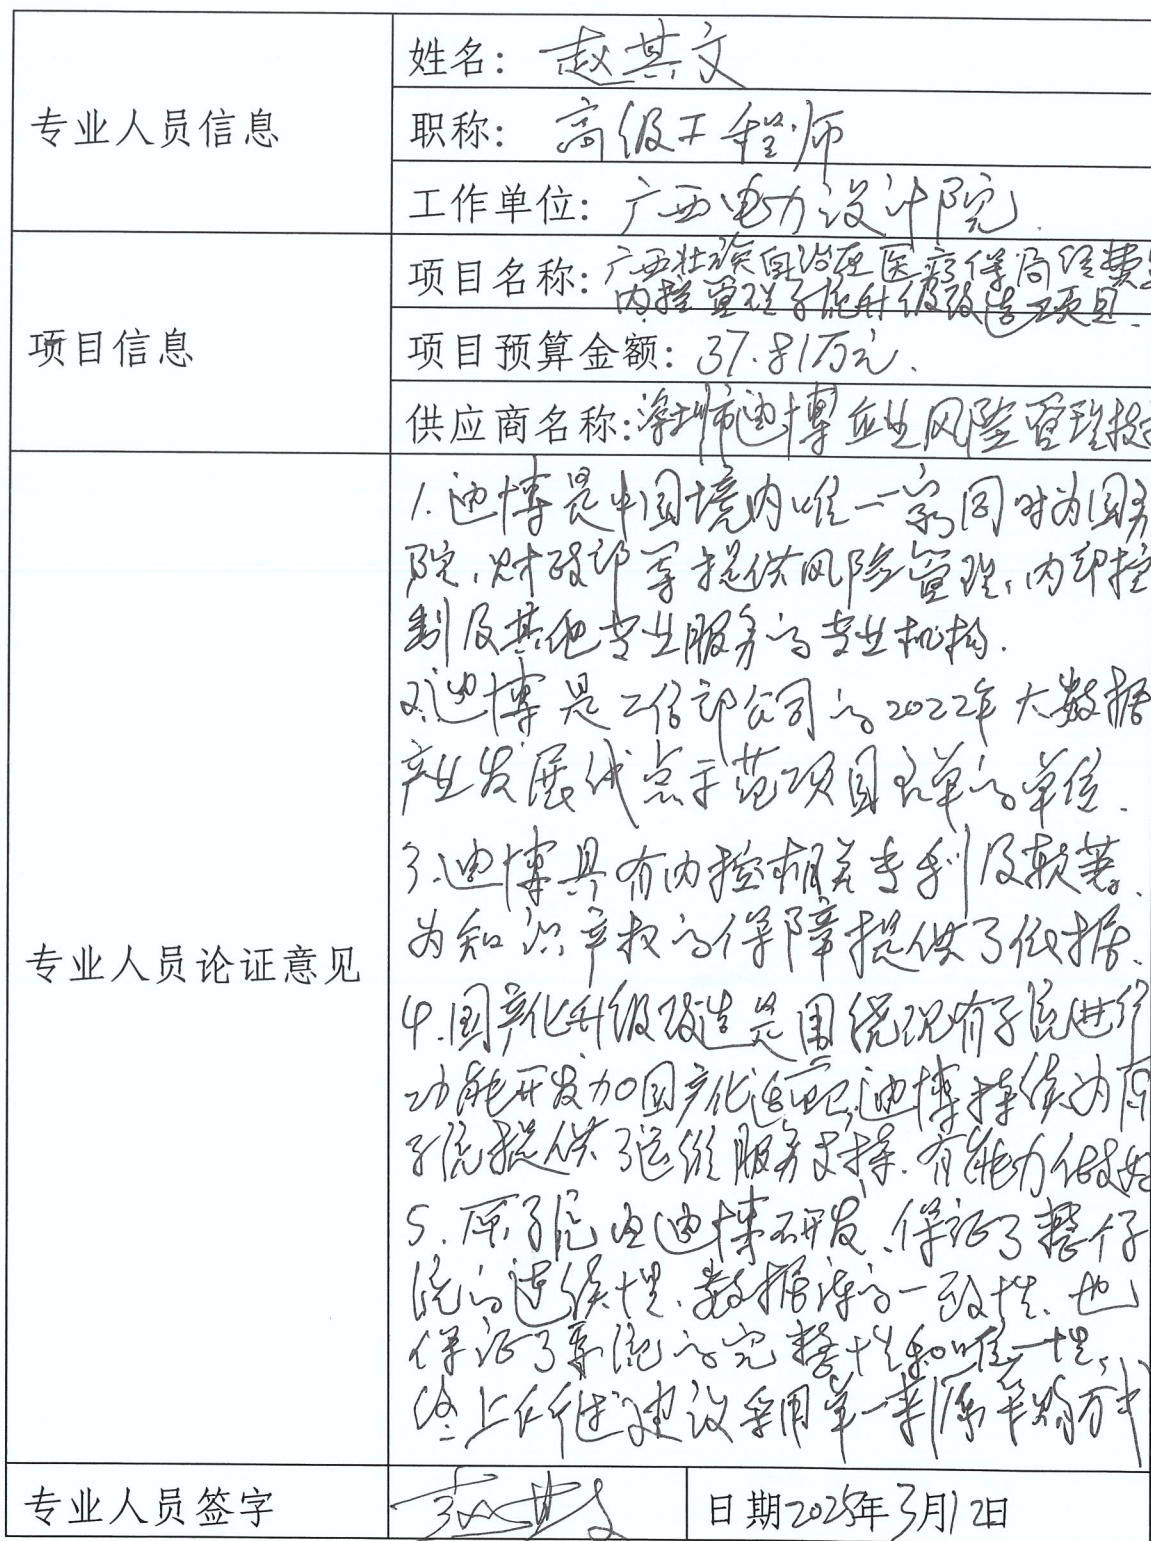 专业人员信息
姓名：赵其文
职称：高级工程师
工作单位：广西电力设计院.
项目信息
项目名称：广西壮族自治区医疗保局经费
内控管理系统升级改造项目.
项目预算金额：37.81万元.
供应商名称：深圳市迪博企业风险管理技
专业人员论证意见
1.迪博是中国境内唯一一家同时为国务
院、财政部等提供风险管理、内部控
制及其他专业服务的专业机构.
2.迪博是工信部公司的2022年大数据
产业发展试点示范项目名单的单位.
3.迪博具有内控相关专利及软著.
为知识产权的保障提供了依据.
4.国产化升级改造是围绕现有系统进行
功能开发加国产化适配,迪博持续为原
系统提供了运维服务支撑.有能力做好
5.原系统由迪博研发、保证了整个系
统的连续性、数据库的一致性.也
保证了系统的完整性和唯一性,
综上所述建议采用单一来源采购方式
专业人员签字
赵其文
日期2025年3月12日